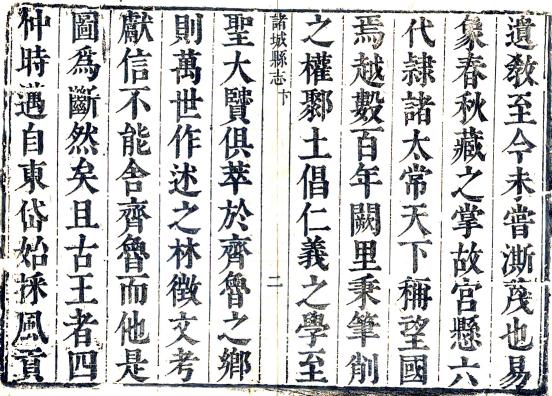 遺教至今未甞澌蔑也易
象春秋藏之掌故官懸六
代隸諸太常天下稱望國
焉越數百年闕里秉筆削
之權鄹土倡仁義之學至
諸城縣志
二
聖大賢俱萃於齊魯之鄉
則萬世作述之林徵文考
獻信不能舍齊魯而他是
圖爲斷然矣且古王者四
仲時邁自東岱始採風貢